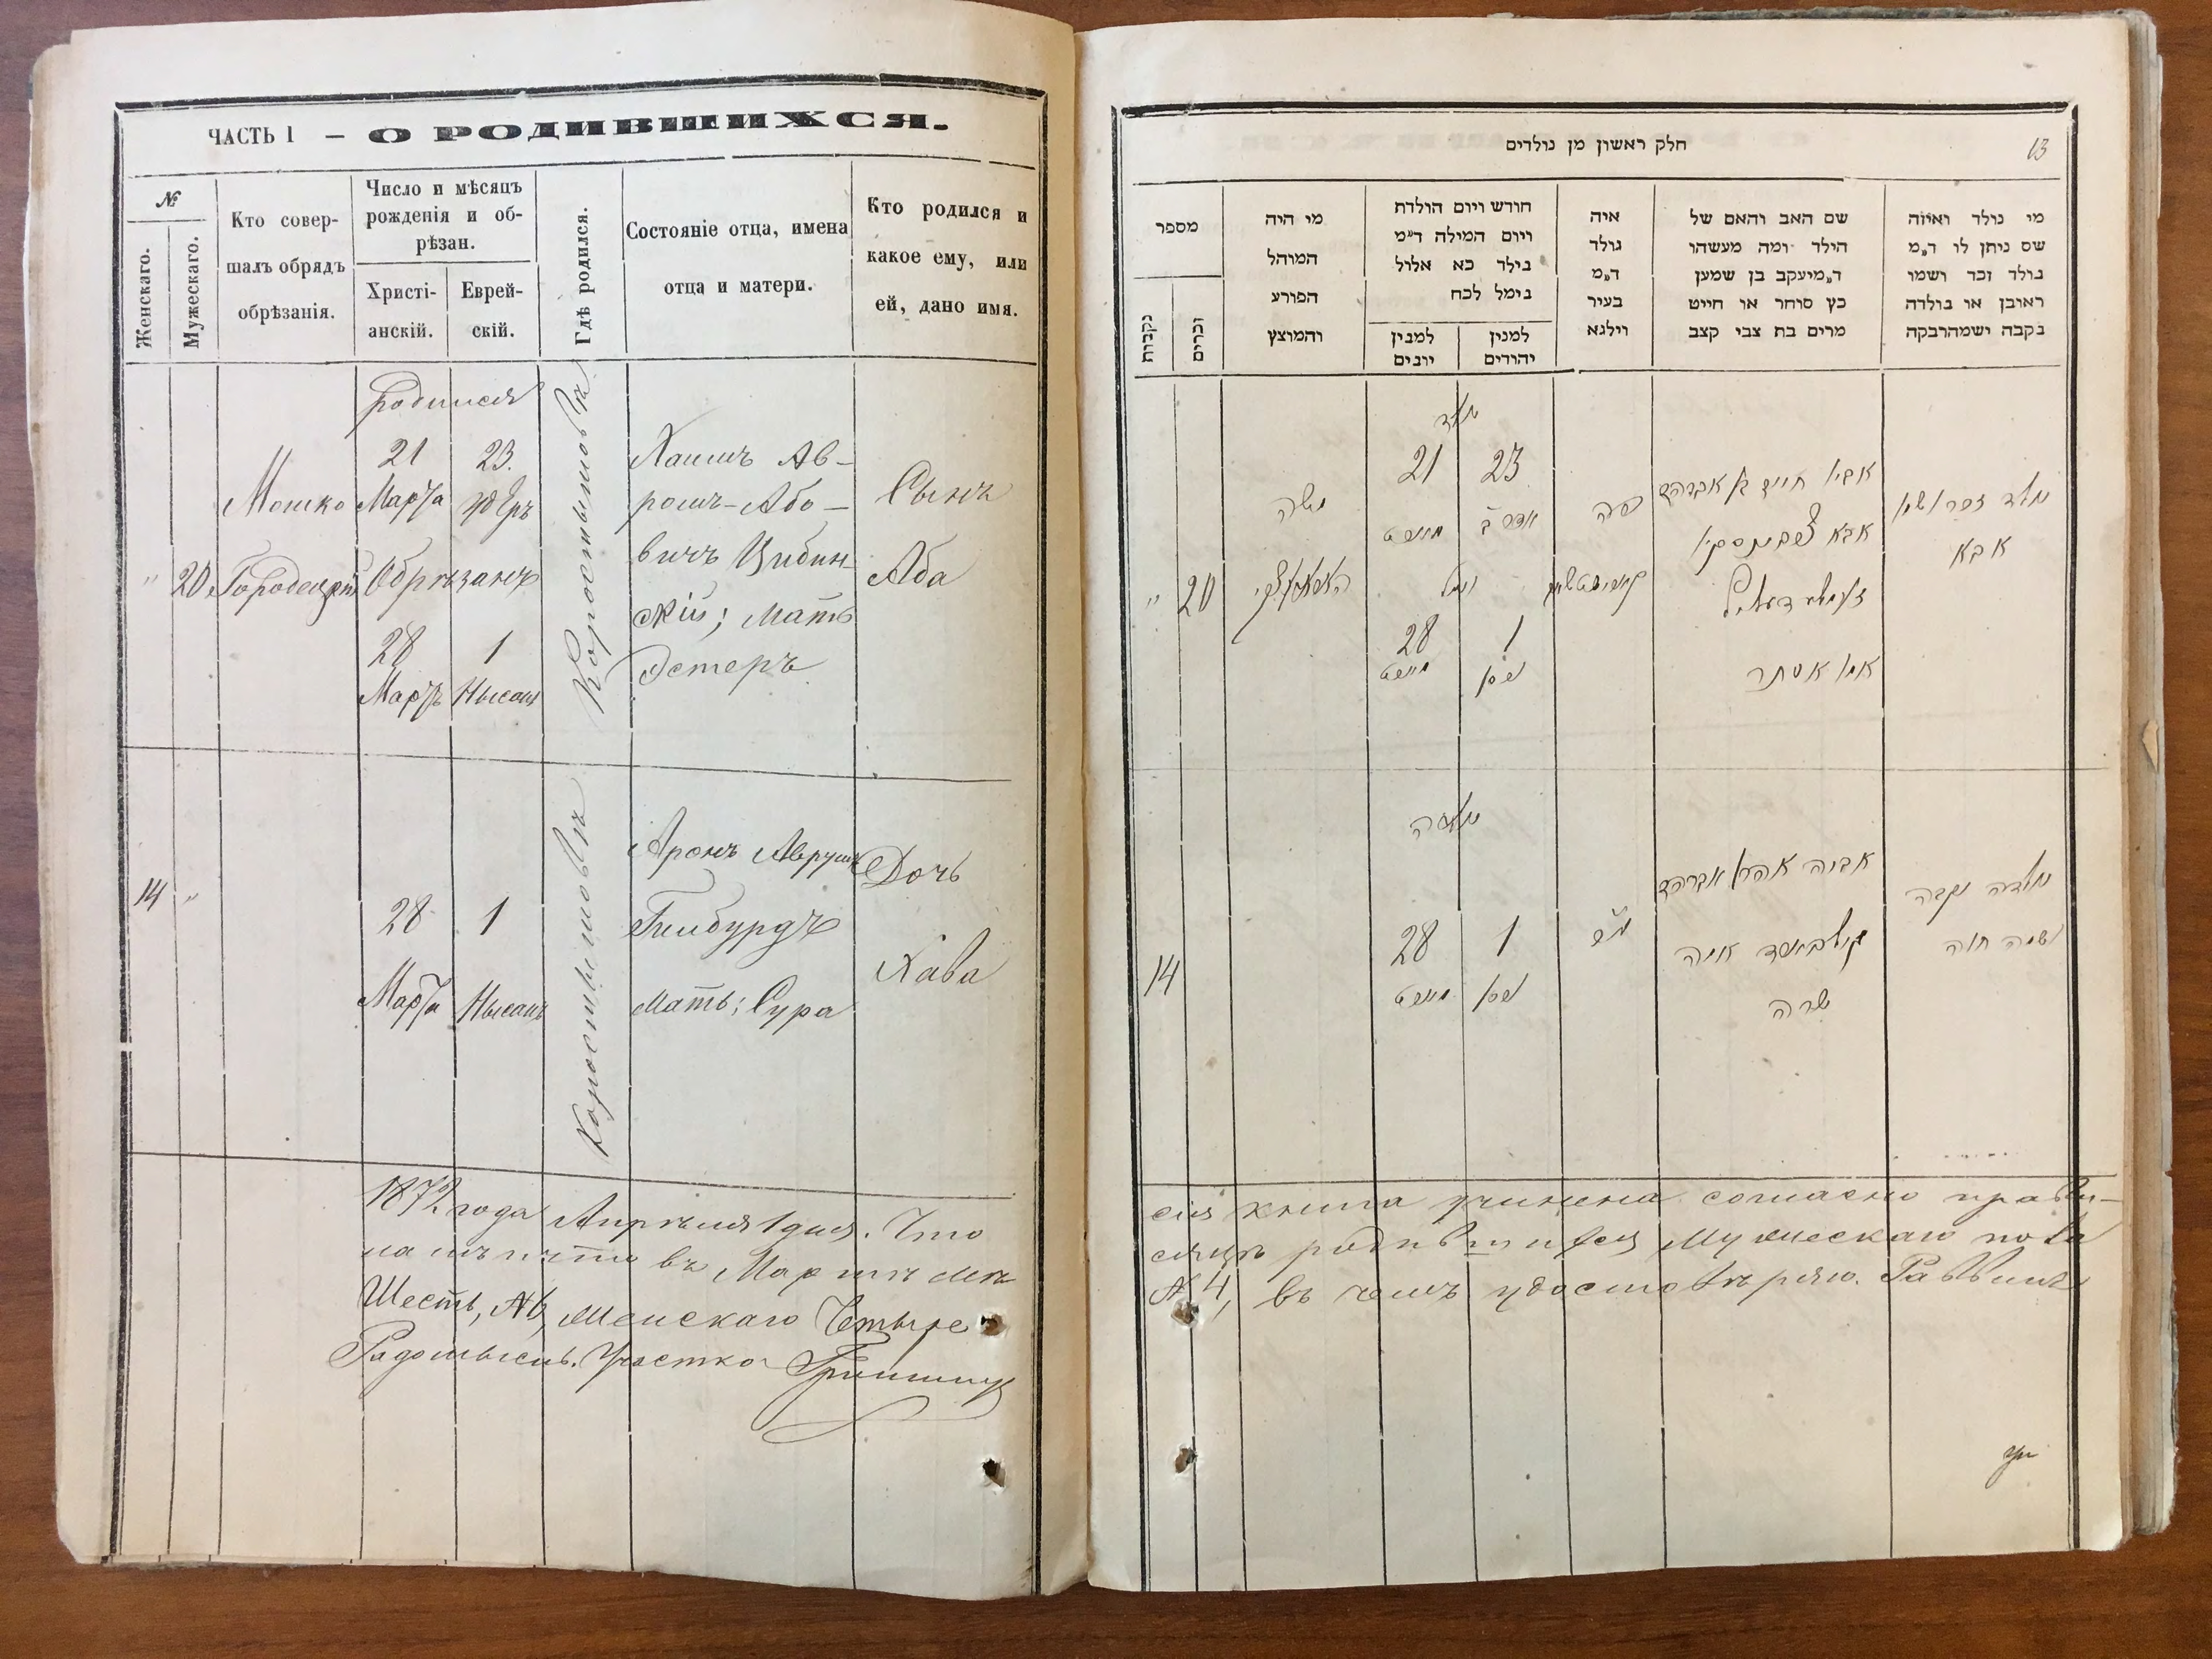 ЧАСТЬ I — О РОДИВШИХСЯ.
№
Женскаго.
Мужескаго.
Кто совер-
шалъ обрядъ
обрѣзанія.
Число и мѣсяцъ
рожденія и об-
рѣзан.
Христі-
анскій.
Еврей-
скій.
Гдѣ родился.
Состояніе отца, имена
отца и матери.
Кто родился и
какое ему, или
ей, дано имя.
"
20
Мошко
Городецкій
родился
21
Марта
23.
Обрѣзанъ
28
Мартъ
1
Нысанъ
Коростышовѣ
Хаимъ Ав-
романъ-Або-
вичъ Цибин
скій; Мать
Эстеръ
Сынъ
Аба
14
"
28
Марта
1
Нысанъ
Коростышовѣ
Аронъ
Мать: Сура
Дочь
Хава
1872 года Апрѣля 1 дня. Что
ламъ и что въ Мартѣ мѣ
Шесть, №6, Женскаго Четыре
Радомысль. Участка
חלק ראשון מן נולדים
13
מספר
נקבות
זכרים
מי היה
המוהל
הפורע
והמוצץ
חודש ויום הולדת
ויום המילה ד״מ
נילד כא אלול
נימל לכח
למנין
יונים
למנין
יהודים
איה
נולד
ד״מ
בעיר
וילנא
שם האב והאם של
הילד ומה מעשהו
ד״מ יעקב בן שמען
כץ סוחר או חייט
מרים בת צבי קצב
מי נולד ואיזה
שם ניתן לו ד״מ
נולד זכר ושמו
ראובן או נולדה
נקבה ושמה רבקה
"
20
משה
נולד
21
23
אדר ב
נימול
28
1
ניסן
פה
אביו חיים בן אברהם
אבא
אמו אסתר
נולד זכר ושמו
אבא
14
נולדה
28
1
ניסן
אביה אהרן אברהם
אמה
שרה
נולדה נקבה
ושמה חוה
сія книга учинена согласно прави-
сяцѣ родившихся Мужескаго пола
№ 4, въ чемъ удостовѣряю. Раввинъ